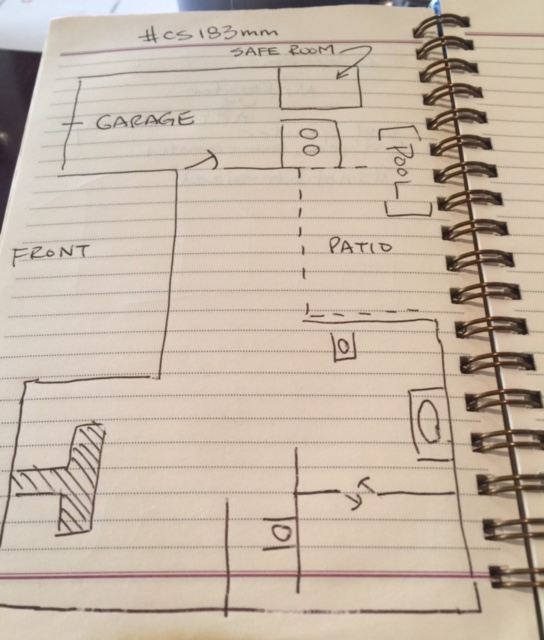 #CS183mm
SAFE ROOM
GARAGE
[POOL]
FRONT
PATIO